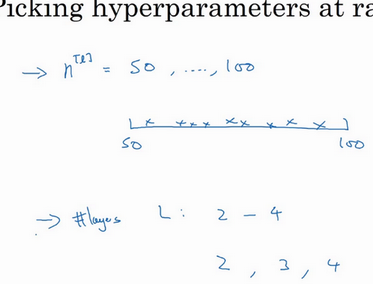 Picking hyperparameters at ra
→ n[l] = 50 , ...., 100
50 100
→ #layers L: 2 - 4
2 , 3 , 4